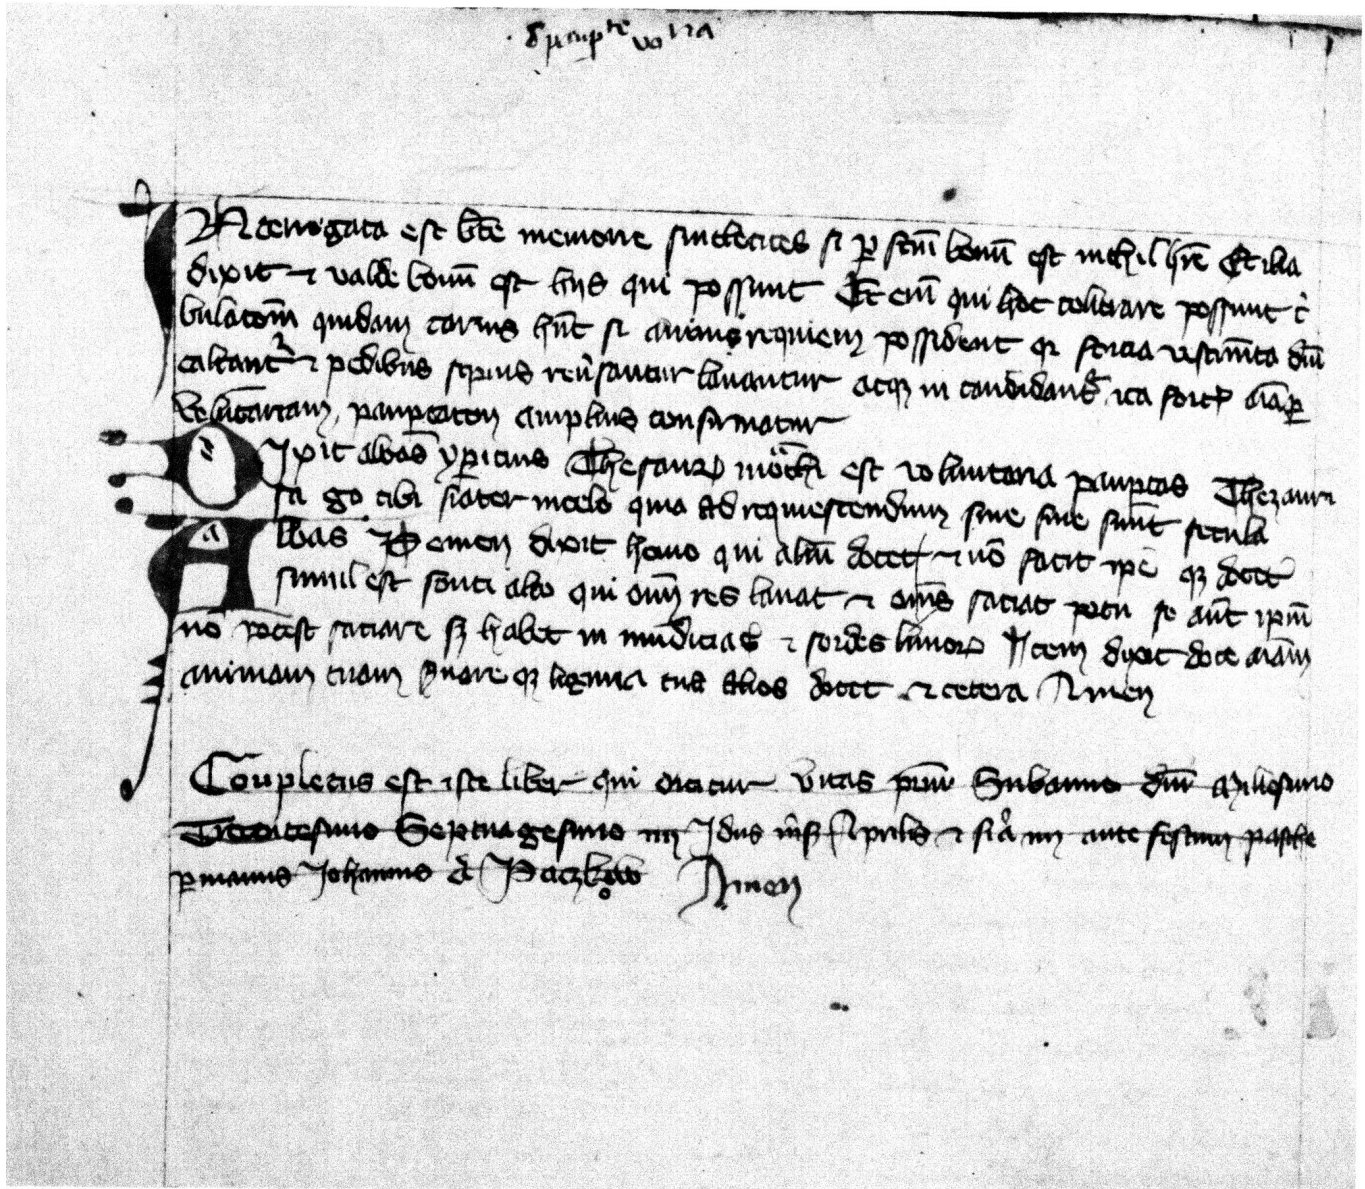 INterrogata est bte memorie sincletices si per fcm bonū est nichil hre Et illa
dixit et valde bonū est hys qui possunt Et em qui hoc tolerare possunt t̄
bulacōem quidam carnis hnt si animus requiem possident qr forcia vestimta dū
calcantur et pedibus sepius reusantur lauantur atqz in candidant ita fortis aīa per
volūtariam paupertatem amplius confirmatur
Dixit abbas ypericius Thesaurus mōchi est voluntaria paupertas Thezauri
sa go tibi frater in celo quia ad requiescendum sine fine sunt secula
Abbas Pemen dixit homo qui aliū docet et nō facit ipē qz docet
simil est fonti alto qui omnes res lauat et omēs saciat potu se aūt ipm
nō potest saciare sz habet in mūdicias et sordes limorum Item dixit doce aiām
animam tuam seruare qz lingwa tua alios docet et cetera Amen
Completus est iste liber qui dicitur vitas prm Sub anno dni Milesimo
Trecentesimo Septuagesimo iiij Idus mēsis Aprilis et fra iiij ante festum pasche
per manus Johannis de Paczkow Amen